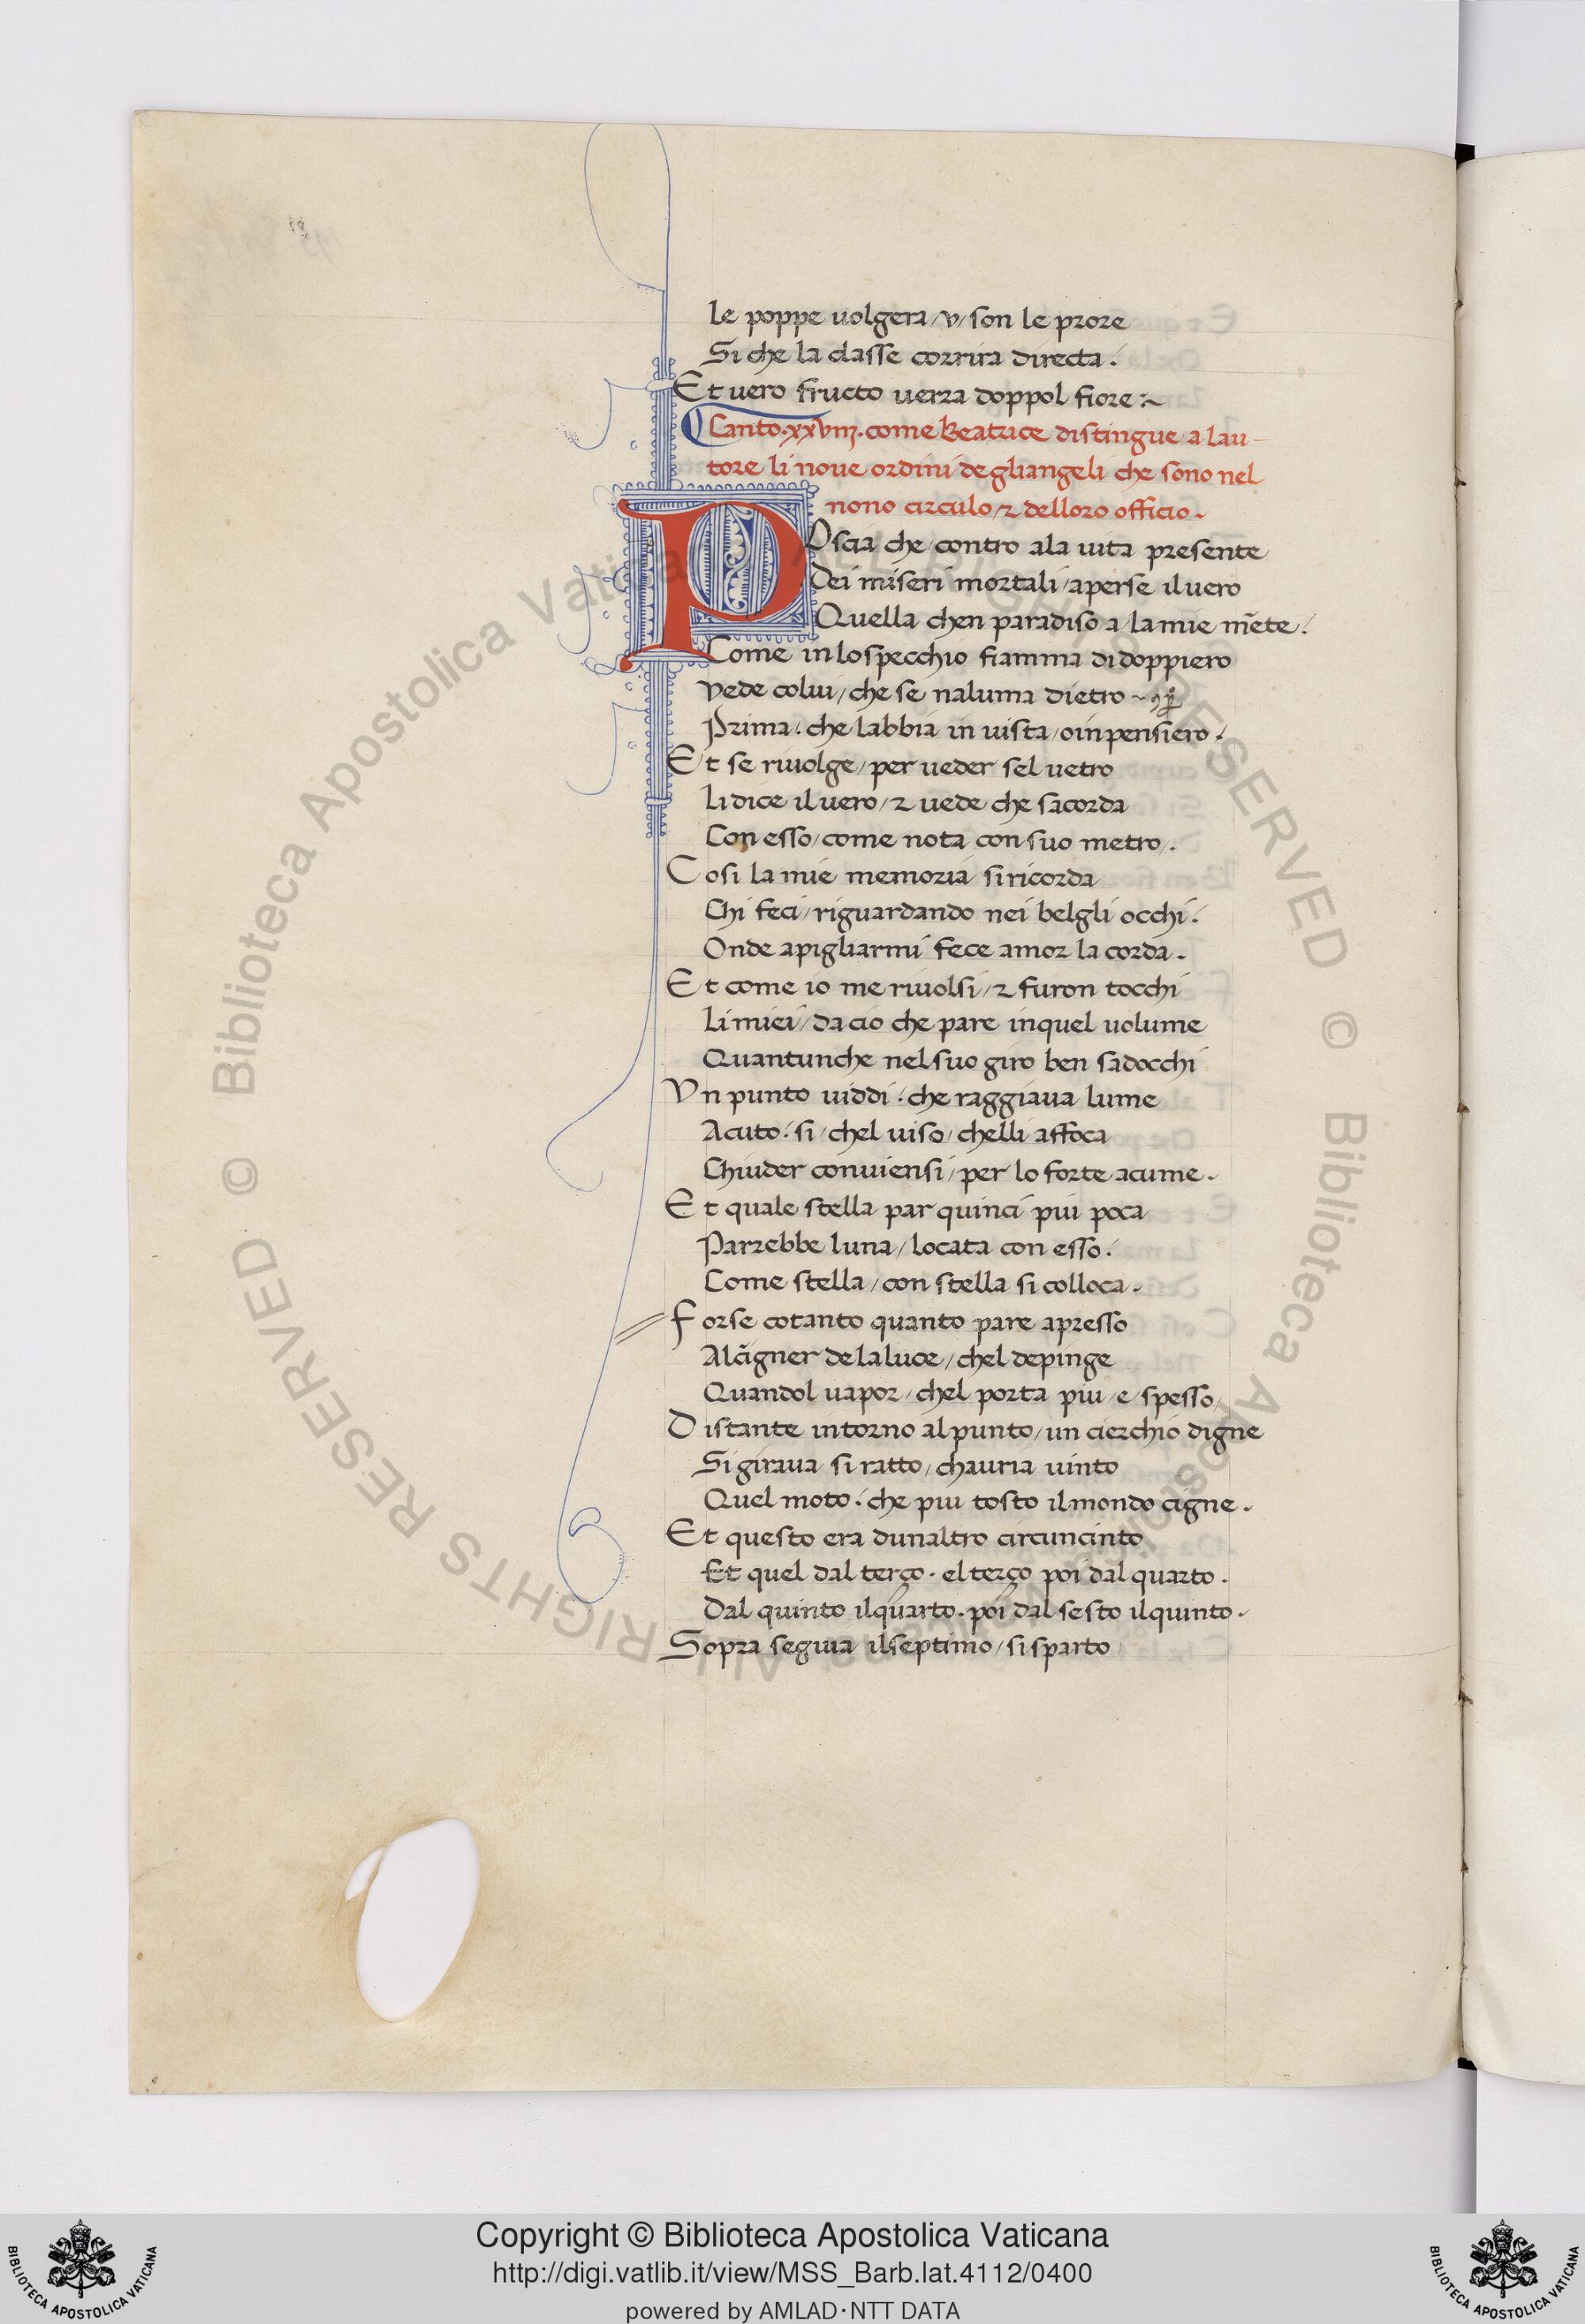 Le poppe uolgera / v / son le prore
Si che la classe corrira directa .
Et uero fructo uerra doppol fiore :~
Canto . xxviij . come Beatrice distingue a lau-
tore li noue ordini de gliangeli che sono nel
nono circulo / ⁊ delloro officio .
POscia che contro ala uita presente
Dei miseri mortali / aperse il uero
Quella chen paradiso / a / la mie mēte /.
Come in lo specchio fiamma di doppiero
Vede colui / che se naluma dietro ~
Prima . che labbia in uista / o in pensiero .
Et se riuolge / per ueder sel uetro
Li dice il uero / ⁊ uede che sacorda
Con esso / come nota con suo metro / .
Cosi la mie memoria si ricorda
Chi feci / riguardando nei belgli occhi /.
Onde a pigliarmi fece amor la corda .
Et come io me riuolsi / ⁊ furon tocchi
Li miei / da cio che pare in quel uolume
Quantunche nel suo giro ben sadocchi
Vn punto uiddi /. che raggiaua lume
Acuto /. si / chel uiso / chelli affoca
Chiuder conuiensi / per lo forte acume .
Et quale stella par quinci piu poca
Parrebbe luna / locata con esso /.
Come stella / con stella si colloca .
Forse cotanto quanto pare apresso
Al cigner de la luce / chel depinge
Quandol uapor / chel porta piu / e / spesso /
Distante intorno al punto / un cierchio digne
Si giraua si ratto / chauria uinto
Quel moto /. che piu tosto il mondo cigne .
Et questo era dunaltro circuncinto
Et quel dal terço . el terço poi dal quarto .
Dal quinto il quarto . poi dal sesto il quinto .
Sopra seguia il septimo / si sparto
© Biblioteca Apostolica Vaticana ALL RIGHTS RESERVED © Biblioteca Apostolica Vaticana ALL RIGHTS RESERVED
Copyright © Biblioteca Apostolica Vaticana
http://digi.vatlib.it/view/MSS_Barb.lat.4112/0400
powered by AMLAD·NTT DATA
BIBLIOTECA APOSTOLICA VATICANA
BIBLIOTECA APOSTOLICA VATICANA